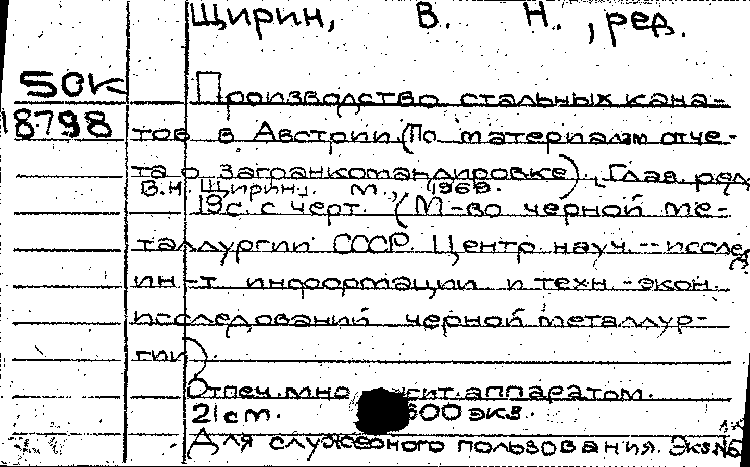 Щирин, В. Н., ред.
50к
18798
Производство стальных кана-
тов в Австрии (По материалам отче-
та о загранкомандировке). Глав. ред.
В.Н. Щирин. М., 1969.
19 с. с черт. (М-во черной ме-
таллургии СССР. Центр. науч.-исслед.
ин-т информации и техн.-экон.
исследований черной металлур-
гии).
Отпеч. множит. аппаратом.
21 cm. 600 экз.
Для служебного пользования. Экз №